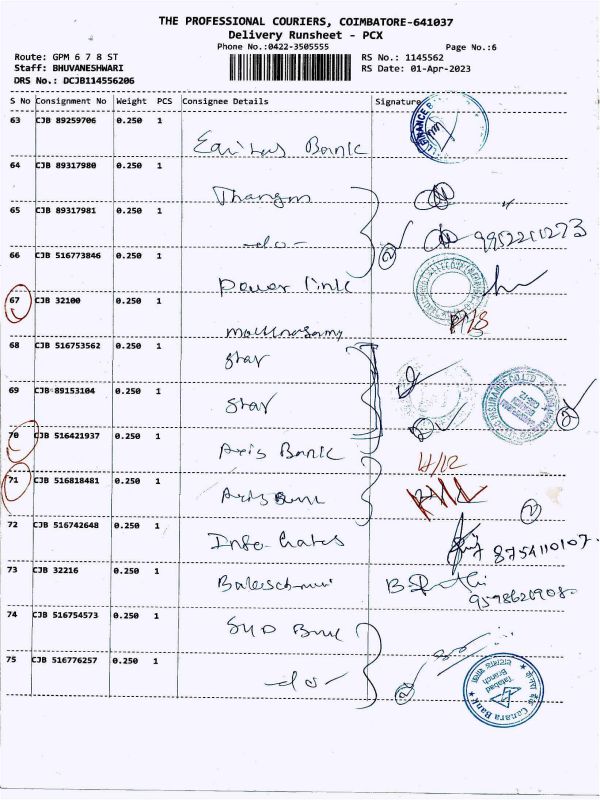 THE PROFESSIONAL COURIERS, COIMBATORE-641037
Delivery Runsheet - PCX
Phone No.:0422-3505555
Page No.:6
Route: GPM 6 7 8 ST
RS No.: 1145562
Staff: BHUVANESHWARI
RS Date: 01-Apr-2023
DRS No.: DCJB114556206
S No Consignment No Weight PCS Consignee Details Signature
63 CJB 89259706 0.250 1
Bank
64 CJB 89317980 0.250 1
Thangm
65 CJB 89317981 0.250 1
-do-
2
9952211273
66 CJB 516773846 0.250 1
Power link
67 CJB 32100 0.250 1
68 CJB 516753562 0.250 1
Star
69 CJB 89153104 0.250 1
Star
2
70 CJB 516421937 0.250 1
Axis Bank
71 CJB 516818481 0.250 1
Axis Bank
2
72 CJB 516742648 0.250 1
8754110107
73 CJB 32216 0.250 1
74 CJB 516754573 0.250 1
75 CJB 516776257 0.250 1
-do-
2
Canara Bank
Tatabad
Branch